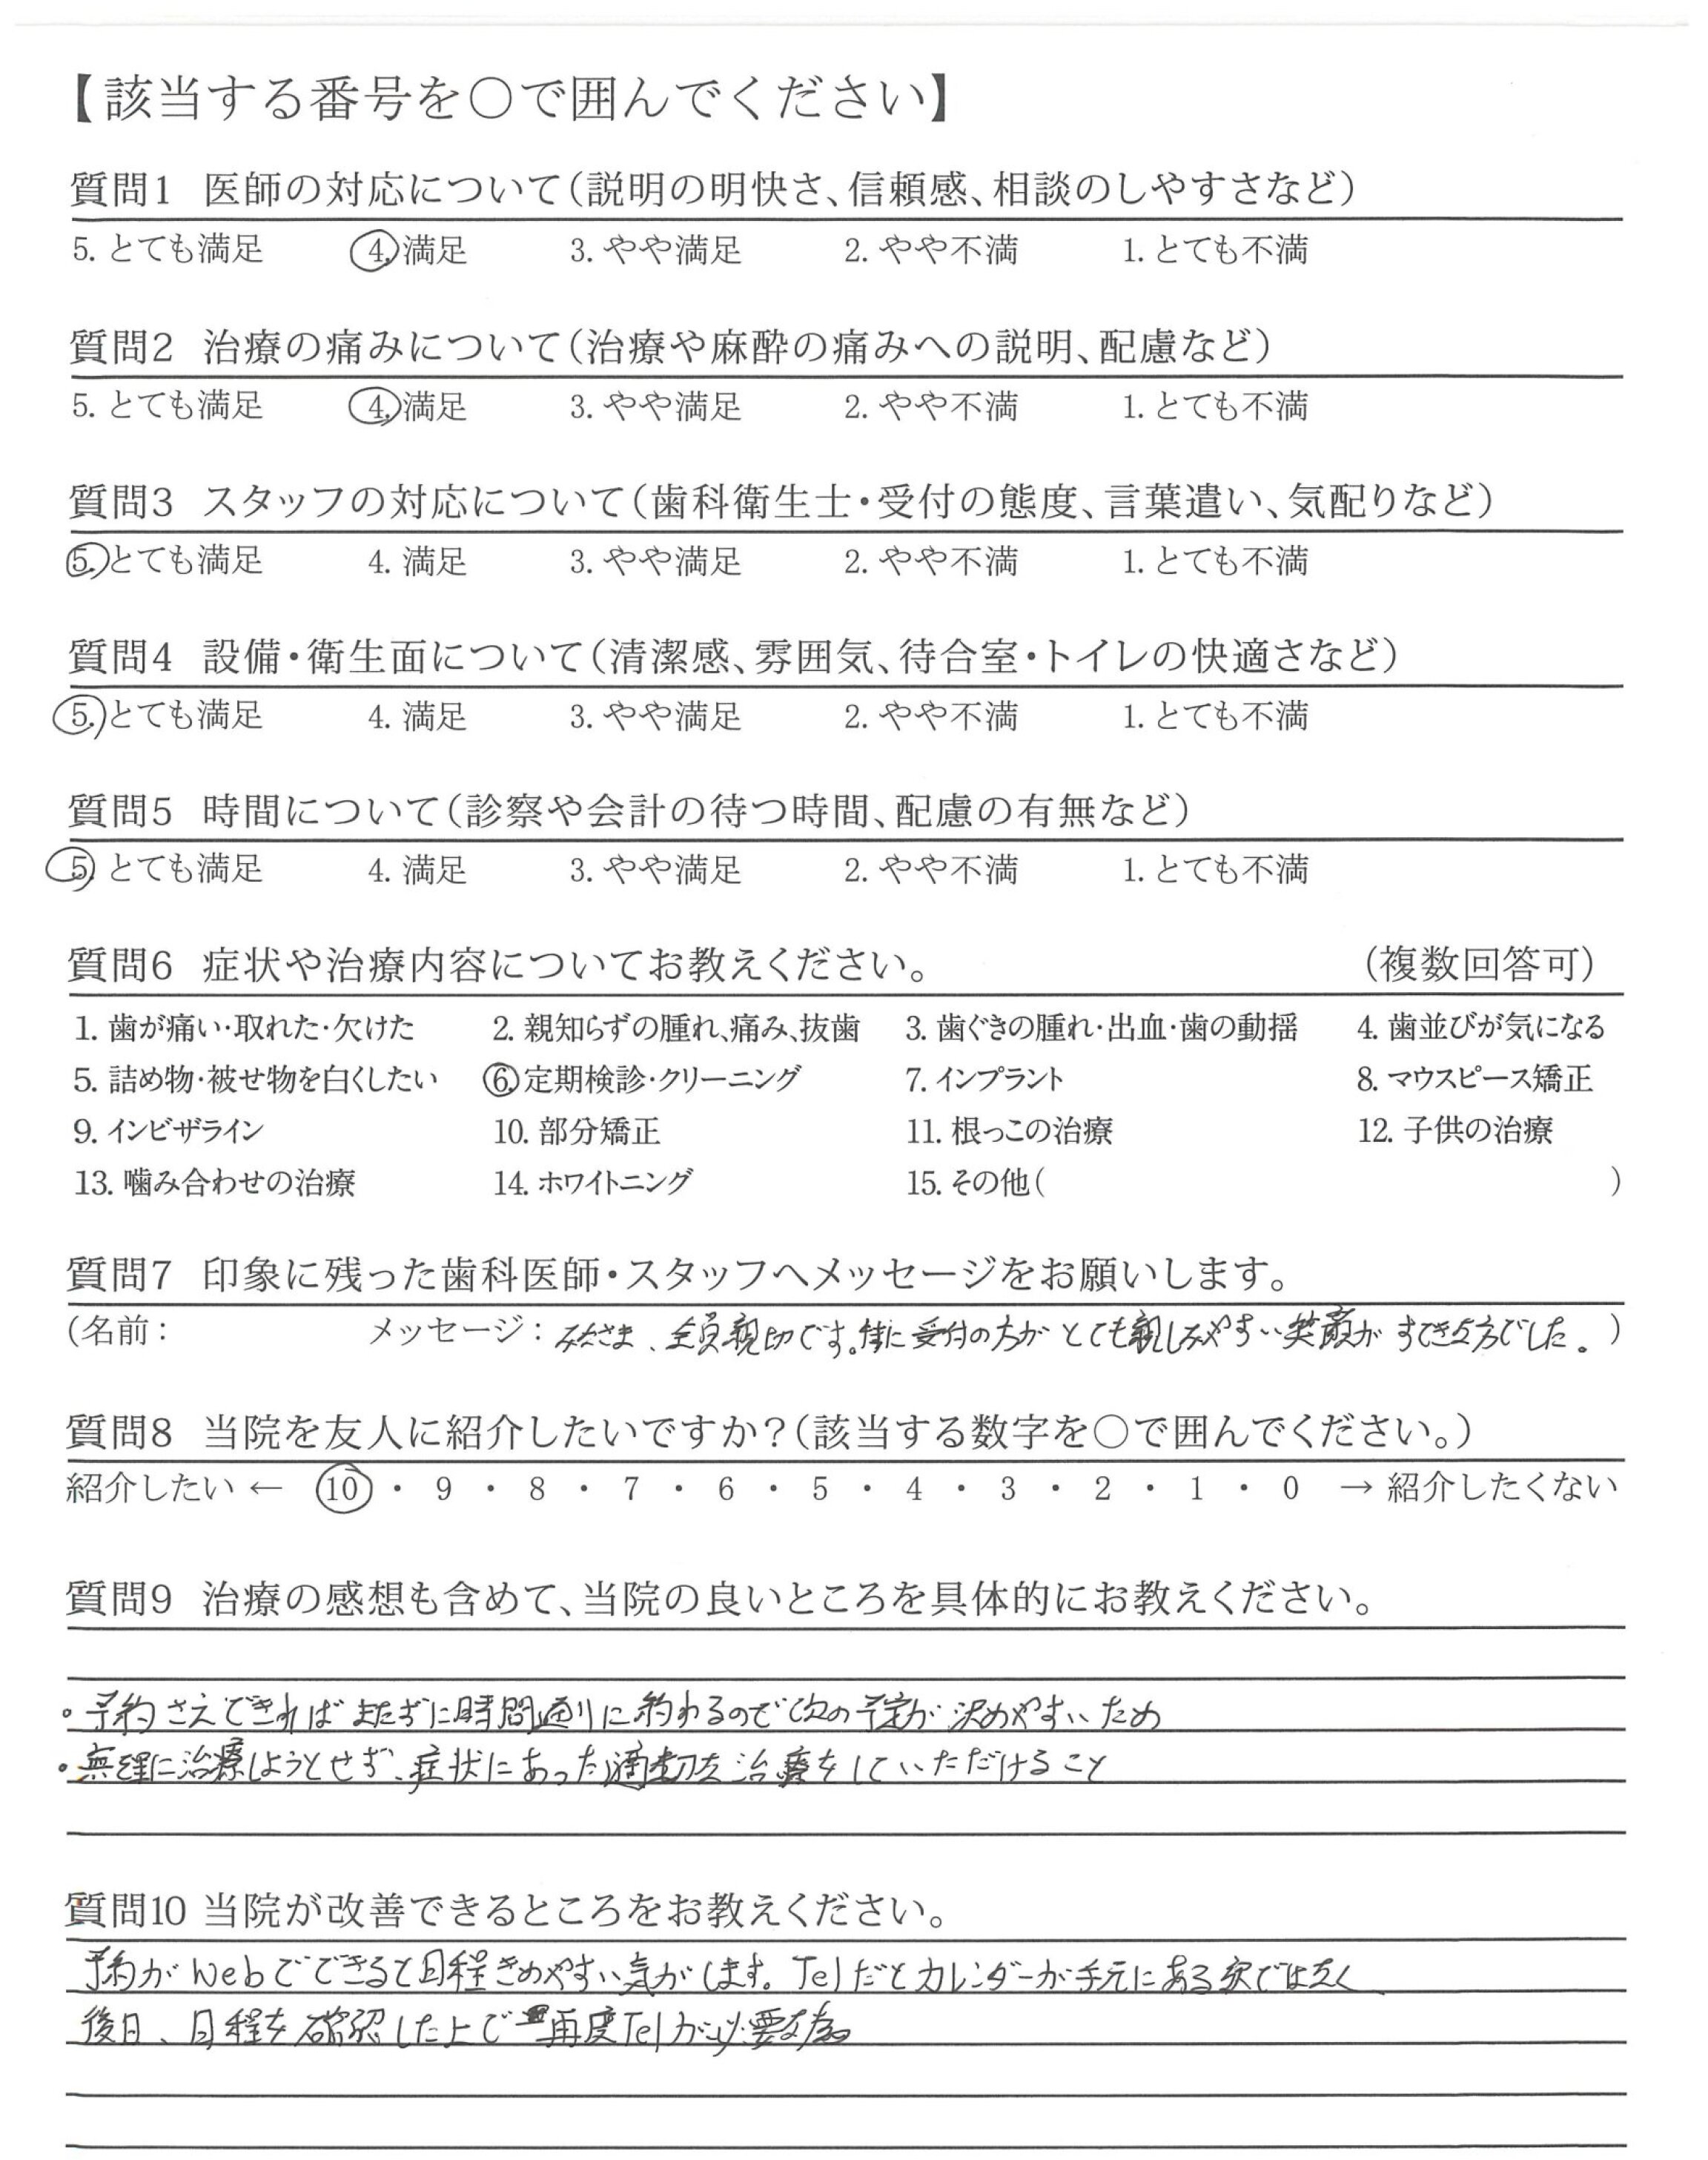 【該当する番号を○で囲んでください】
質問1 医師の対応について(説明の明快さ、信頼感、相談のしやすさなど)
5. とても満足 4. 満足 3. やや満足 2. やや不満 1. とても不満
質問2 治療の痛みについて(治療や麻酔の痛みへの説明、配慮など)
5. とても満足 4. 満足 3. やや満足 2. やや不満 1. とても不満
質問3 スタッフの対応について(歯科衛生士・受付の態度、言葉遣い、気配りなど)
5. とても満足 4. 満足 3. やや満足 2. やや不満 1. とても不満
質問4 設備・衛生面について(清潔感、雰囲気、待合室・トイレの快適さなど)
5. とても満足 4. 満足 3. やや満足 2. やや不満 1. とても不満
質問5 時間について(診察や会計の待つ時間、配慮の有無など)
5. とても満足 4. 満足 3. やや満足 2. やや不満 1. とても不満
質問6 症状や治療内容についてお教えください。 (複数回答可)
1. 歯が痛い・取れた・欠けた 2. 親知らずの腫れ、痛み、抜歯 3. 歯ぐきの腫れ・出血・歯の動揺 4. 歯並びが気になる
5. 詰め物・被せ物を白くしたい 6. 定期検診・クリーニング 7. インプラント 8. マウスピース矯正
9. インビザライン 10. 部分矯正 11. 根っこの治療 12. 子供の治療
13. 噛み合わせの治療 14. ホワイトニング 15. その他( )
質問7 印象に残った歯科医師・スタッフへメッセージをお願いします。
(名前: メッセージ: みなさま、全員親切です。特に受付の方がとても親しみやすい笑顔がすてきな方でした。)
質問8 当院を友人に紹介したいですか?(該当する数字を○で囲んでください。)
紹介したい ← 10 ・ 9 ・ 8 ・ 7 ・ 6 ・ 5 ・ 4 ・ 3 ・ 2 ・ 1 ・ 0 → 紹介したくない
質問9 治療の感想も含めて、当院の良いところを具体的にお教えください。
・予約さえできればまたずに時間通りに終わるので次の予定が決めやすいため
・無理に治療しようとせず、症状にあった適切な治療をしていただけること
質問10 当院が改善できるところをお教えください。
予約がWebでできると日程きめやすい気がします。Telだとカレンダーが手元にある家ではなく
後日、日程を確認した上で再度Telが必要な為